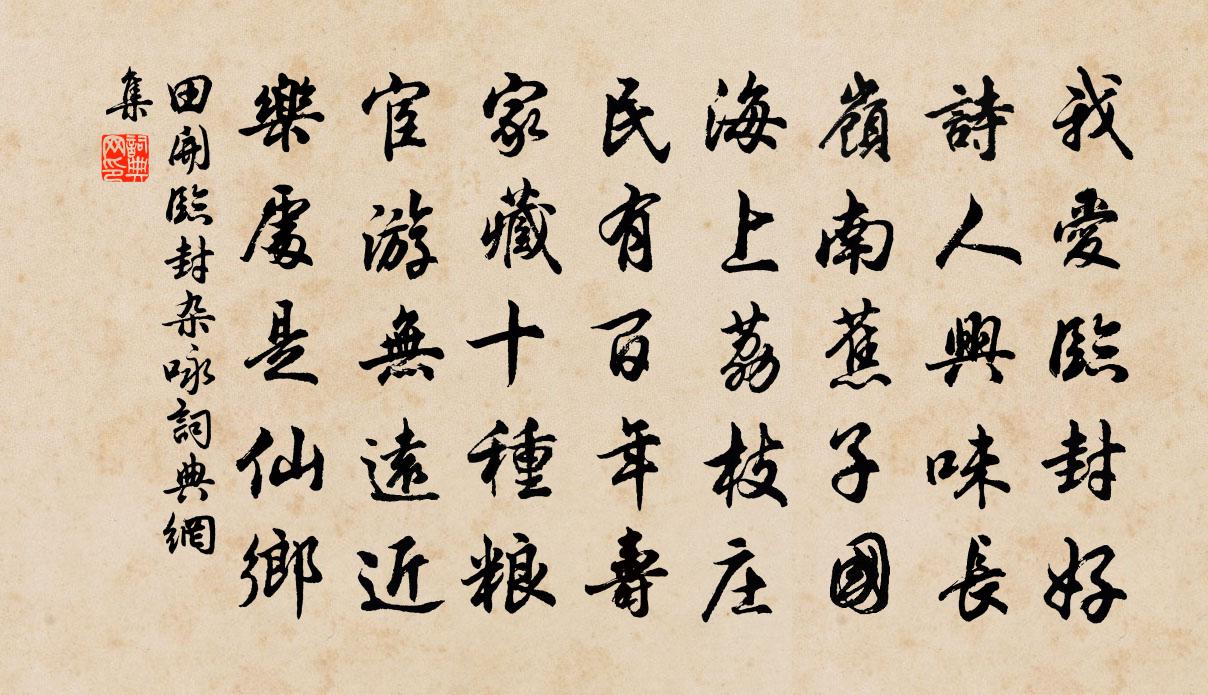 我愛臨封好
詩人興味長
嶺南蕉子國
海上荔枝庄
民有百年壽
家藏十種粮
宦游無遠近
樂處是仙鄉
田開臨封杂咏詞典網
集
詞典網印